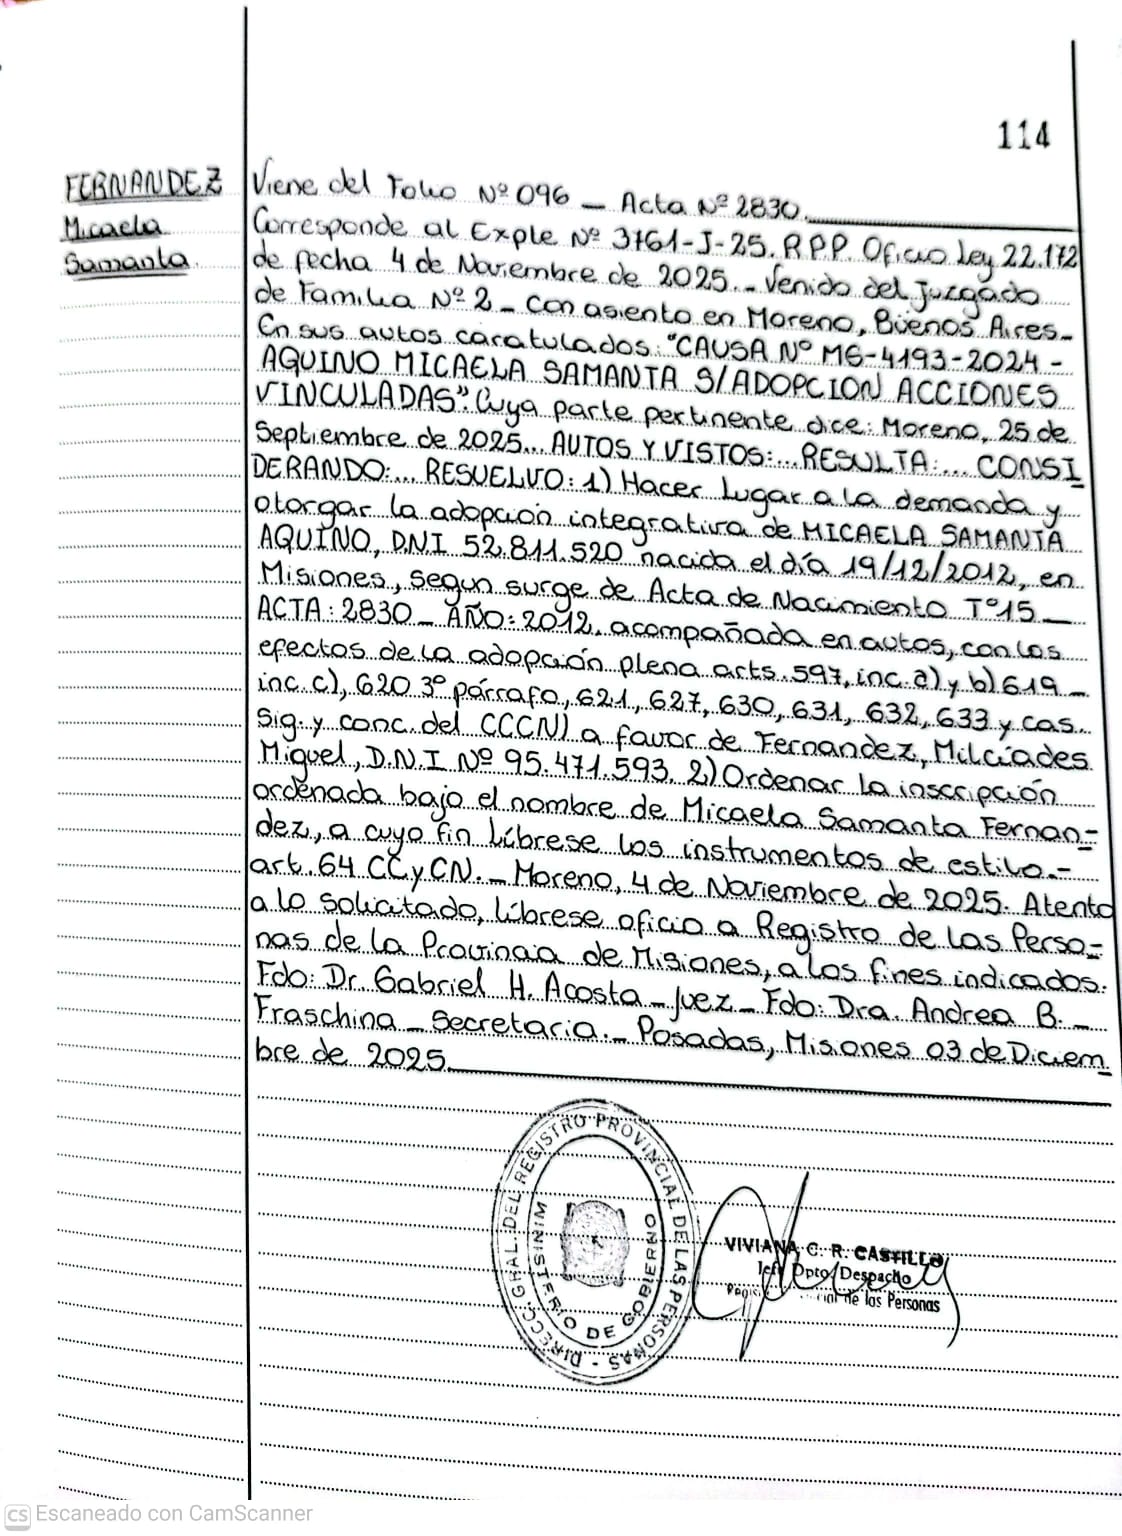 114
FERNANDEZ
Micaela
Samanta.
Viene del Folio Nº 096 _ Acta Nº 2830.
Corresponde al Exple Nº 3761-J-25. R.P.P. Oficio Ley 22.172
de fecha 4 de Noviembre de 2025._ Venido del Juzgado
de Familia Nº 2 _ con asiento en Moreno, Buenos Aires-
En sus autos caratulados: "CAUSA Nº MG-4193-2024 -
AQUINO MICAELA SAMANTA S/ADOPCION ACCIONES
VINCULADAS". Cuya parte pertinente dice: Moreno, 25 de
Septiembre de 2025... AUTOS Y VISTOS:... RESULTA:... CONSI
DERANDO:... RESUELVO: 1) Hacer lugar a la demanda y
otorgar la adopción integrativa de MICAELA SAMANTA
AQUINO, D.N.I 52.811.520 nacida el día 19/12/2012, en
Misiones, segun surge de Acta de Nacimiento Tº15 _
ACTA: 2830 _ AÑO: 2012, acompañada en autos, con los
efectos de la adopción plena arts. 597, inc. a) y b) 619 _
inc. c), 620 3º párrafo, 621, 627, 630, 631, 632, 633 y cas.
Sig. y conc. del CCCN) a favor de Fernandez, Milcíades
Miguel, D.N.I Nº 95.471.593. 2) Ordenar la inscripción
ordenada bajo el nombre de Micaela Samanta Fernan-
dez, a cuyo fin líbrese los instrumentos de estilo.-
art. 64 CCyCN. _ Moreno, 4 de Noviembre de 2025. Atento
a lo solicitado, líbrese oficio a Registro de las Perso-
nas de la Provincia de Misiones, a los fines indicados.
Fdo: Dr. Gabriel H. Acosta _ Juez _ Fdo: Dra. Andrea B. _
Fraschina _ Secretaria._ Posadas, Misiones 03 de Diciem
bre de 2025.
DIRECC. GRAL. DEL REGISTRO PROVINCIAL DE LAS PERSONAS -
MINISTERIO DE GOBIERNO
VIVIANA C. R. CASTILLO
Jefe Dpto Despacho
de las Personas
CS Escaneado con CamScanner